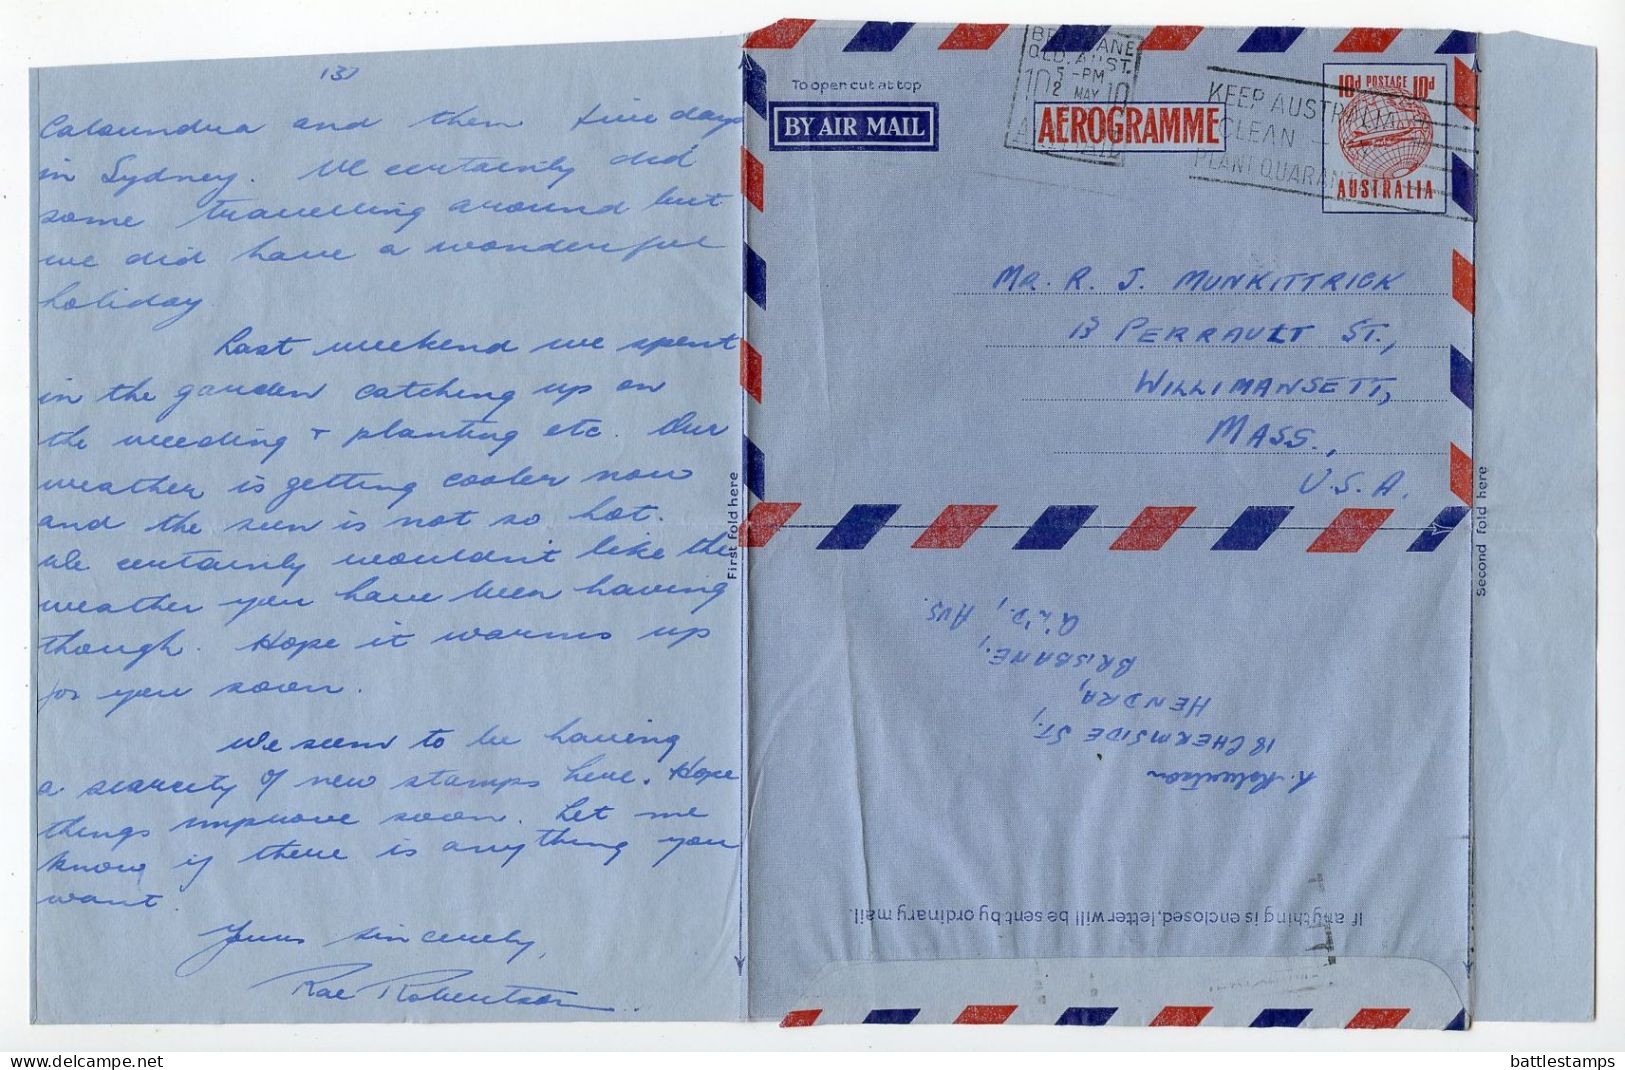 (3)
Caloundra and then five days
in Sydney. We certainly did
some travelling around but
we did have a wonderful
holiday.
Last weekend we spent
in the garden catching up on
the weeding + planting etc. Our
weather is getting cooler now
and the sun is not so hot.
We certainly wouldn't like the
weather you have been having
though. Hope it warms up
for you soon.
We seem to be having
a scarcity of new stamps here. Hope
things improve soon. Let me
know if there is anything you
want.
Yours sincerely,
Rae Robertson.
First fold here
To open cut at top
BY AIR MAIL
AEROGRAMME
BRISBANE
QLD. AUST.
5 -PM
2 MAY
KEEP AUSTRALIA
CLEAN
PLANT QUARANT
10d POSTAGE 10d
AUSTRALIA
MR. R. J. MUNKITTRICK
13 PERRAULT ST.,
WILLIMANSETT,
MASS.,
U.S.A.
Second fold here
R. Robertson
18 CHERMSIDE ST.,
HENDRA,
BRISBANE,
Q'L'D., AUS.
If anything is enclosed, letter will be sent by ordinary mail.
battlestamps